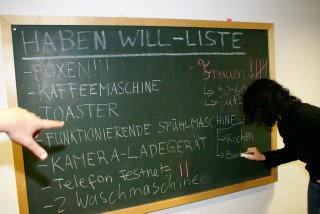 HABEN WILL-LISTE
- BOXEN!!!
- KAFFEEMASCHINE
- TOASTER
- FUNKTIONIERENDE SPÜHLMASCHINE
- KAMERA-LADEGERÄT
- Telefon Festnetz !!
- 2 Waschmaschine
- Frauen!
↳ Kochen